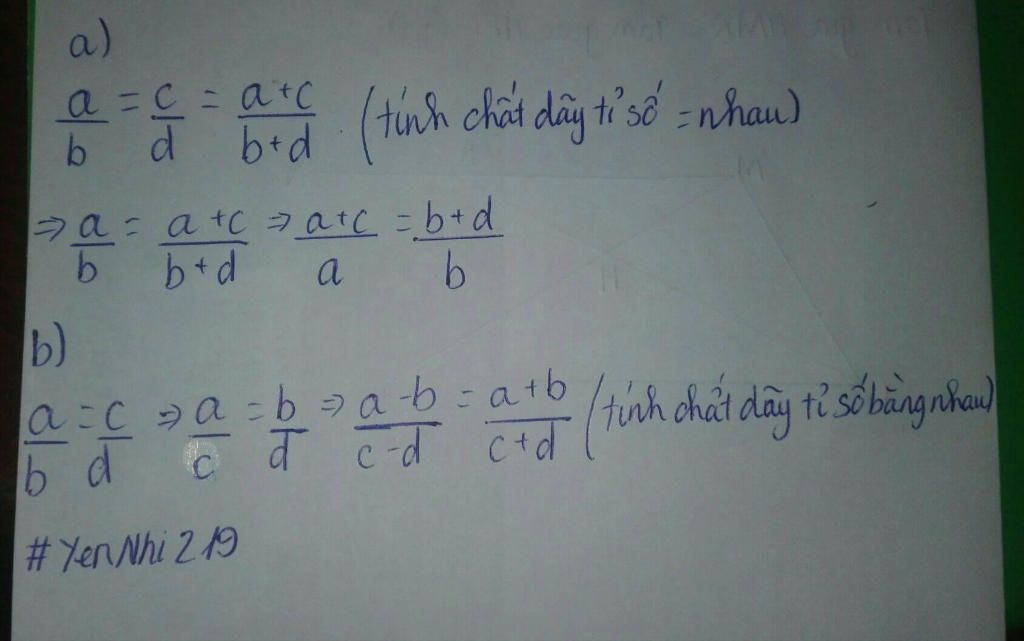 a)
a/b = c/d = a+c/b+d . (tính chất dãy tỉ số = nhau)
⇒ a/b = a+c/b+d ⇒ a+c/a = b+d/b
b)
a/b = c/d ⇒ a/c = b/d ⇒ a-b/c-d = a+b/c+d (tính chất dãy tỉ số bằng nhau)
# Yen Nhi 219